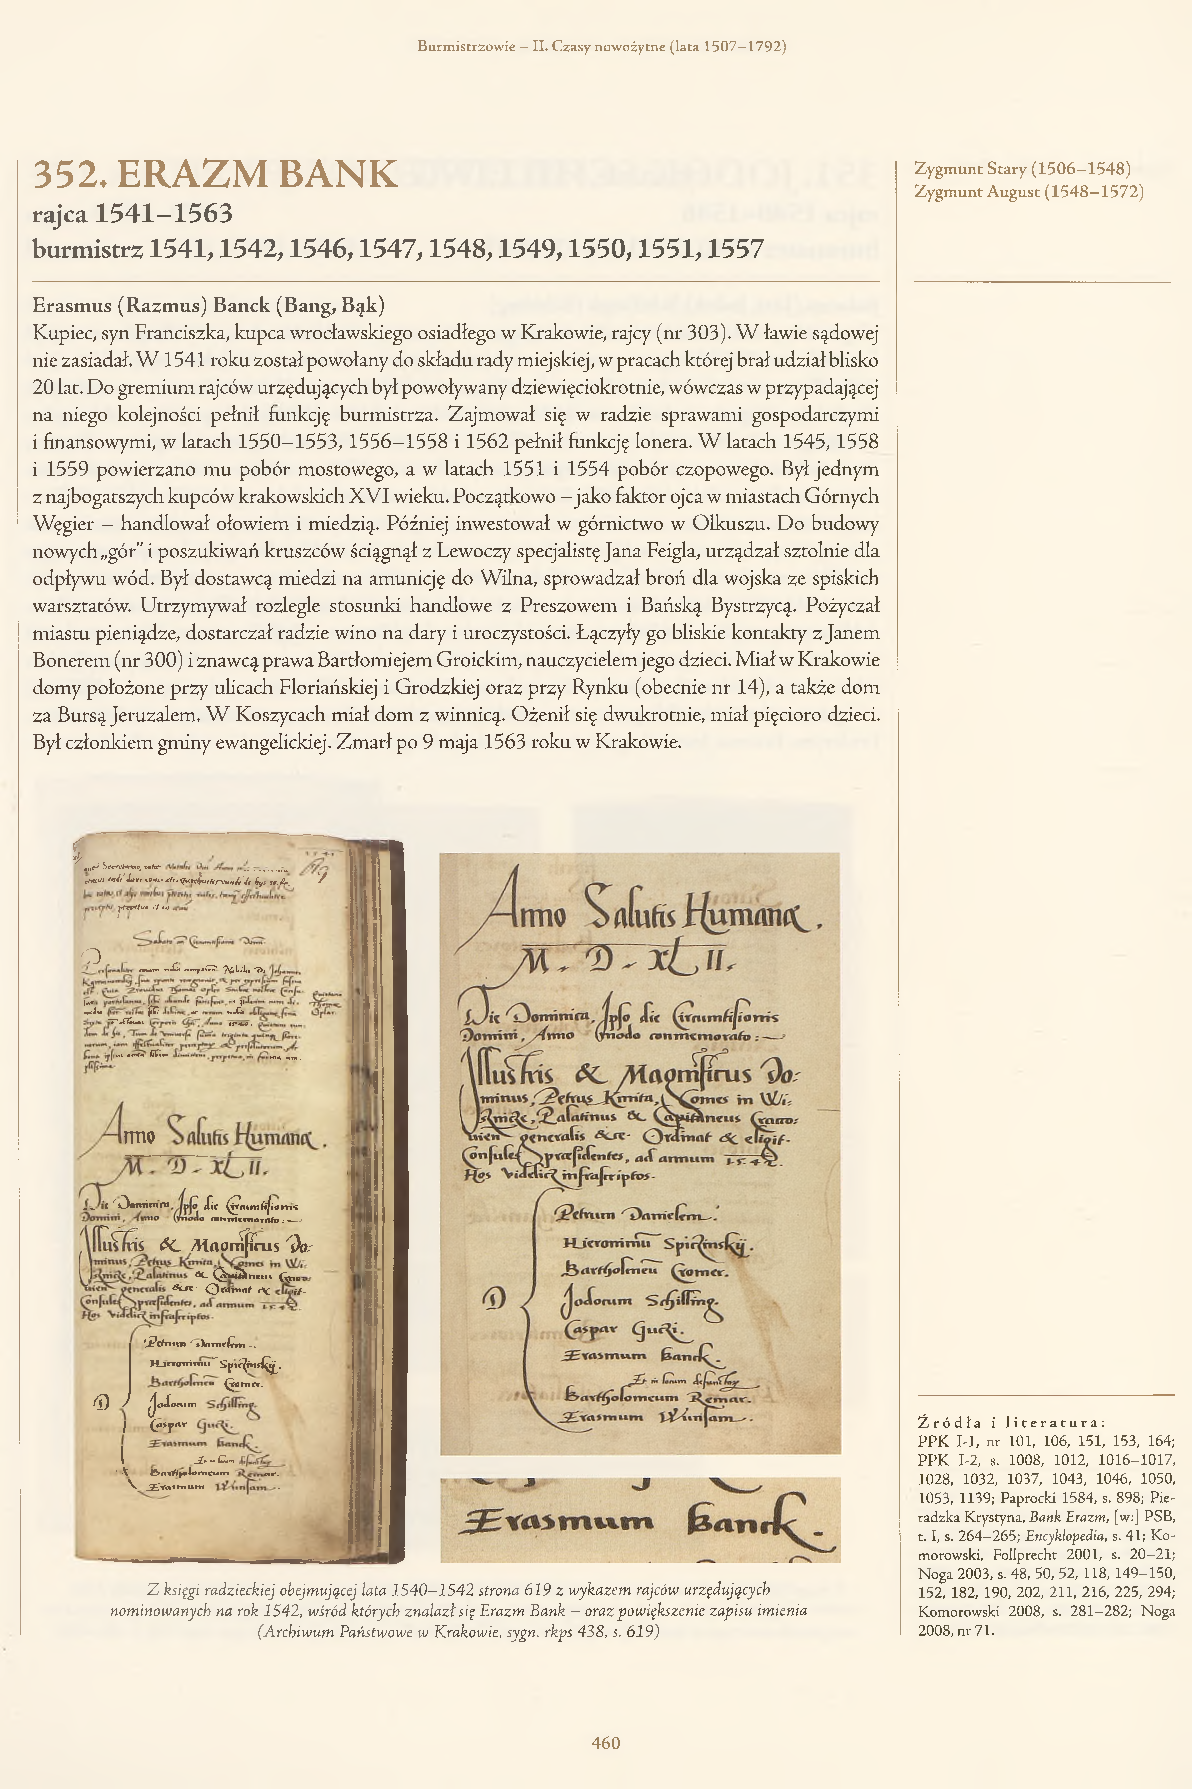 Burmistrzowie – II. Czasy nowożytne (lata 1507–1792)
352. ERAZM BANK
rajca 1541–1563
burmistrz 1541, 1542, 1546, 1547, 1548, 1549, 1550, 1551, 1557
Zygmunt Stary (1506–1548)
Zygmunt August (1548–1572)
Erasmus (Razmus) Banck (Bang, Bąk)
Kupiec, syn Franciszka, kupca wrocławskiego osiadłego w Krakowie, rajcy (nr 303). W ławie sądowej
nie zasiadał. W 1541 roku został powołany do składu rady miejskiej, w pracach której brał udział blisko
20 lat. Do gremium rajców urzędujących był powoływany dziewięciokrotnie, wówczas w przypadającej
na niego kolejności pełnił funkcję burmistrza. Zajmował się w radzie sprawami gospodarczymi
i finansowymi, w latach 1550–1553, 1556–1558 i 1562 pełnił funkcję lonera. W latach 1545, 1558
i 1559 powierzano mu pobór mostowego, a w latach 1551 i 1554 pobór czopowego. Był jednym
z najbogatszych kupców krakowskich XVI wieku. Początkowo – jako faktor ojca w miastach Górnych
Węgier – handlował ołowiem i miedzią. Później inwestował w górnictwo w Olkuszu. Do budowy
nowych „gór” i poszukiwań kruszców ściągnął z Lewoczy specjalistę Jana Feigla, urządzał sztolnie dla
odpływu wód. Był dostawcą miedzi na amunicję do Wilna, sprowadzał broń dla wojska ze spiskich
warsztatów. Utrzymywał rozległe stosunki handlowe z Preszowem i Bańską Bystrzycą. Pożyczał
miastu pieniądze, dostarczał radzie wino na dary i uroczystości. Łączyły go bliskie kontakty z Janem
Bonerem (nr 300) i znawcą prawa Bartłomiejem Groickim, nauczycielem jego dzieci. Miał w Krakowie
domy położone przy ulicach Floriańskiej i Grodzkiej oraz przy Rynku (obecnie nr 14), a także dom
za Bursą Jeruzalem. W Koszycach miał dom z winnicą. Ożenił się dwukrotnie, miał pięcioro dzieci.
Był członkiem gminy ewangelickiej. Zmarł po 9 maja 1563 roku w Krakowie.
619
Anno Salutis Humanæ.
M. D. XLII.
Die Dominica, Ipso die Circumcisionis
Domini, Anno quodo commemorato:
Illustris & Magnificus Do:
minus, Petrus Kmita, Comes in Wi:
Palatinus & Capitaneus Craco:
generalis Ordinat & eligit
Consules præsidentes, ad annum 1542.
Hos infrascriptos.
Petrum Danielem.
Hieronimū
Bartholmeū Cromer.
Jodocum Schilling.
Caspar
Erasmum Banck.
Bartholomeum Remar.
Erasmum
Anno Salutis Humanæ.
M. D. XLII.
Die Dominica, Ipso die Circumcisionis
Domini, Anno quodo commemorato:
Illustris & Magnificus Do:
minus, Petrus Kmita, Comes in Wi:
Palatinus & Capitaneus Craco:
generalis Ordinat & eligit
Consules præsidentes, ad annum 1542.
Hos infrascriptos.
Petrum Danielem.
Hieronimū
Bartholmeū Cromer.
Jodocum Schilling.
Caspar
Erasmum Banck.
Bartholomeum Remar.
Erasmum
Erasmum Banck.
Z księgi radzieckiej obejmującej lata 1540–1542 strona 619 z wykazem rajców urzędujących
nominowanych na rok 1542, wśród których znalazł się Erazm Bank – oraz powiększenie zapisu imienia
(Archiwum Państwowe w Krakowie, sygn. rkps 438, s. 619)
Źródła i literatura:
PPK I-1, nr 101, 106, 151, 153, 164;
PPK I-2, s. 1008, 1012, 1016–1017,
1028, 1032, 1037, 1043, 1046, 1050,
1053, 1139; Paprocki 1584, s. 898; Pie-
radzka Krystyna, Bank Erazm, [w:] PSB,
t. I, s. 264–265; Encyklopedia, s. 41; Ko-
morowski, Follprecht 2001, s. 20–21;
Noga 2003, s. 48, 50, 52, 118, 149–150,
152, 182, 190, 202, 211, 216, 225, 294;
Komorowski 2008, s. 281–282; Noga
2008, nr 71.
460